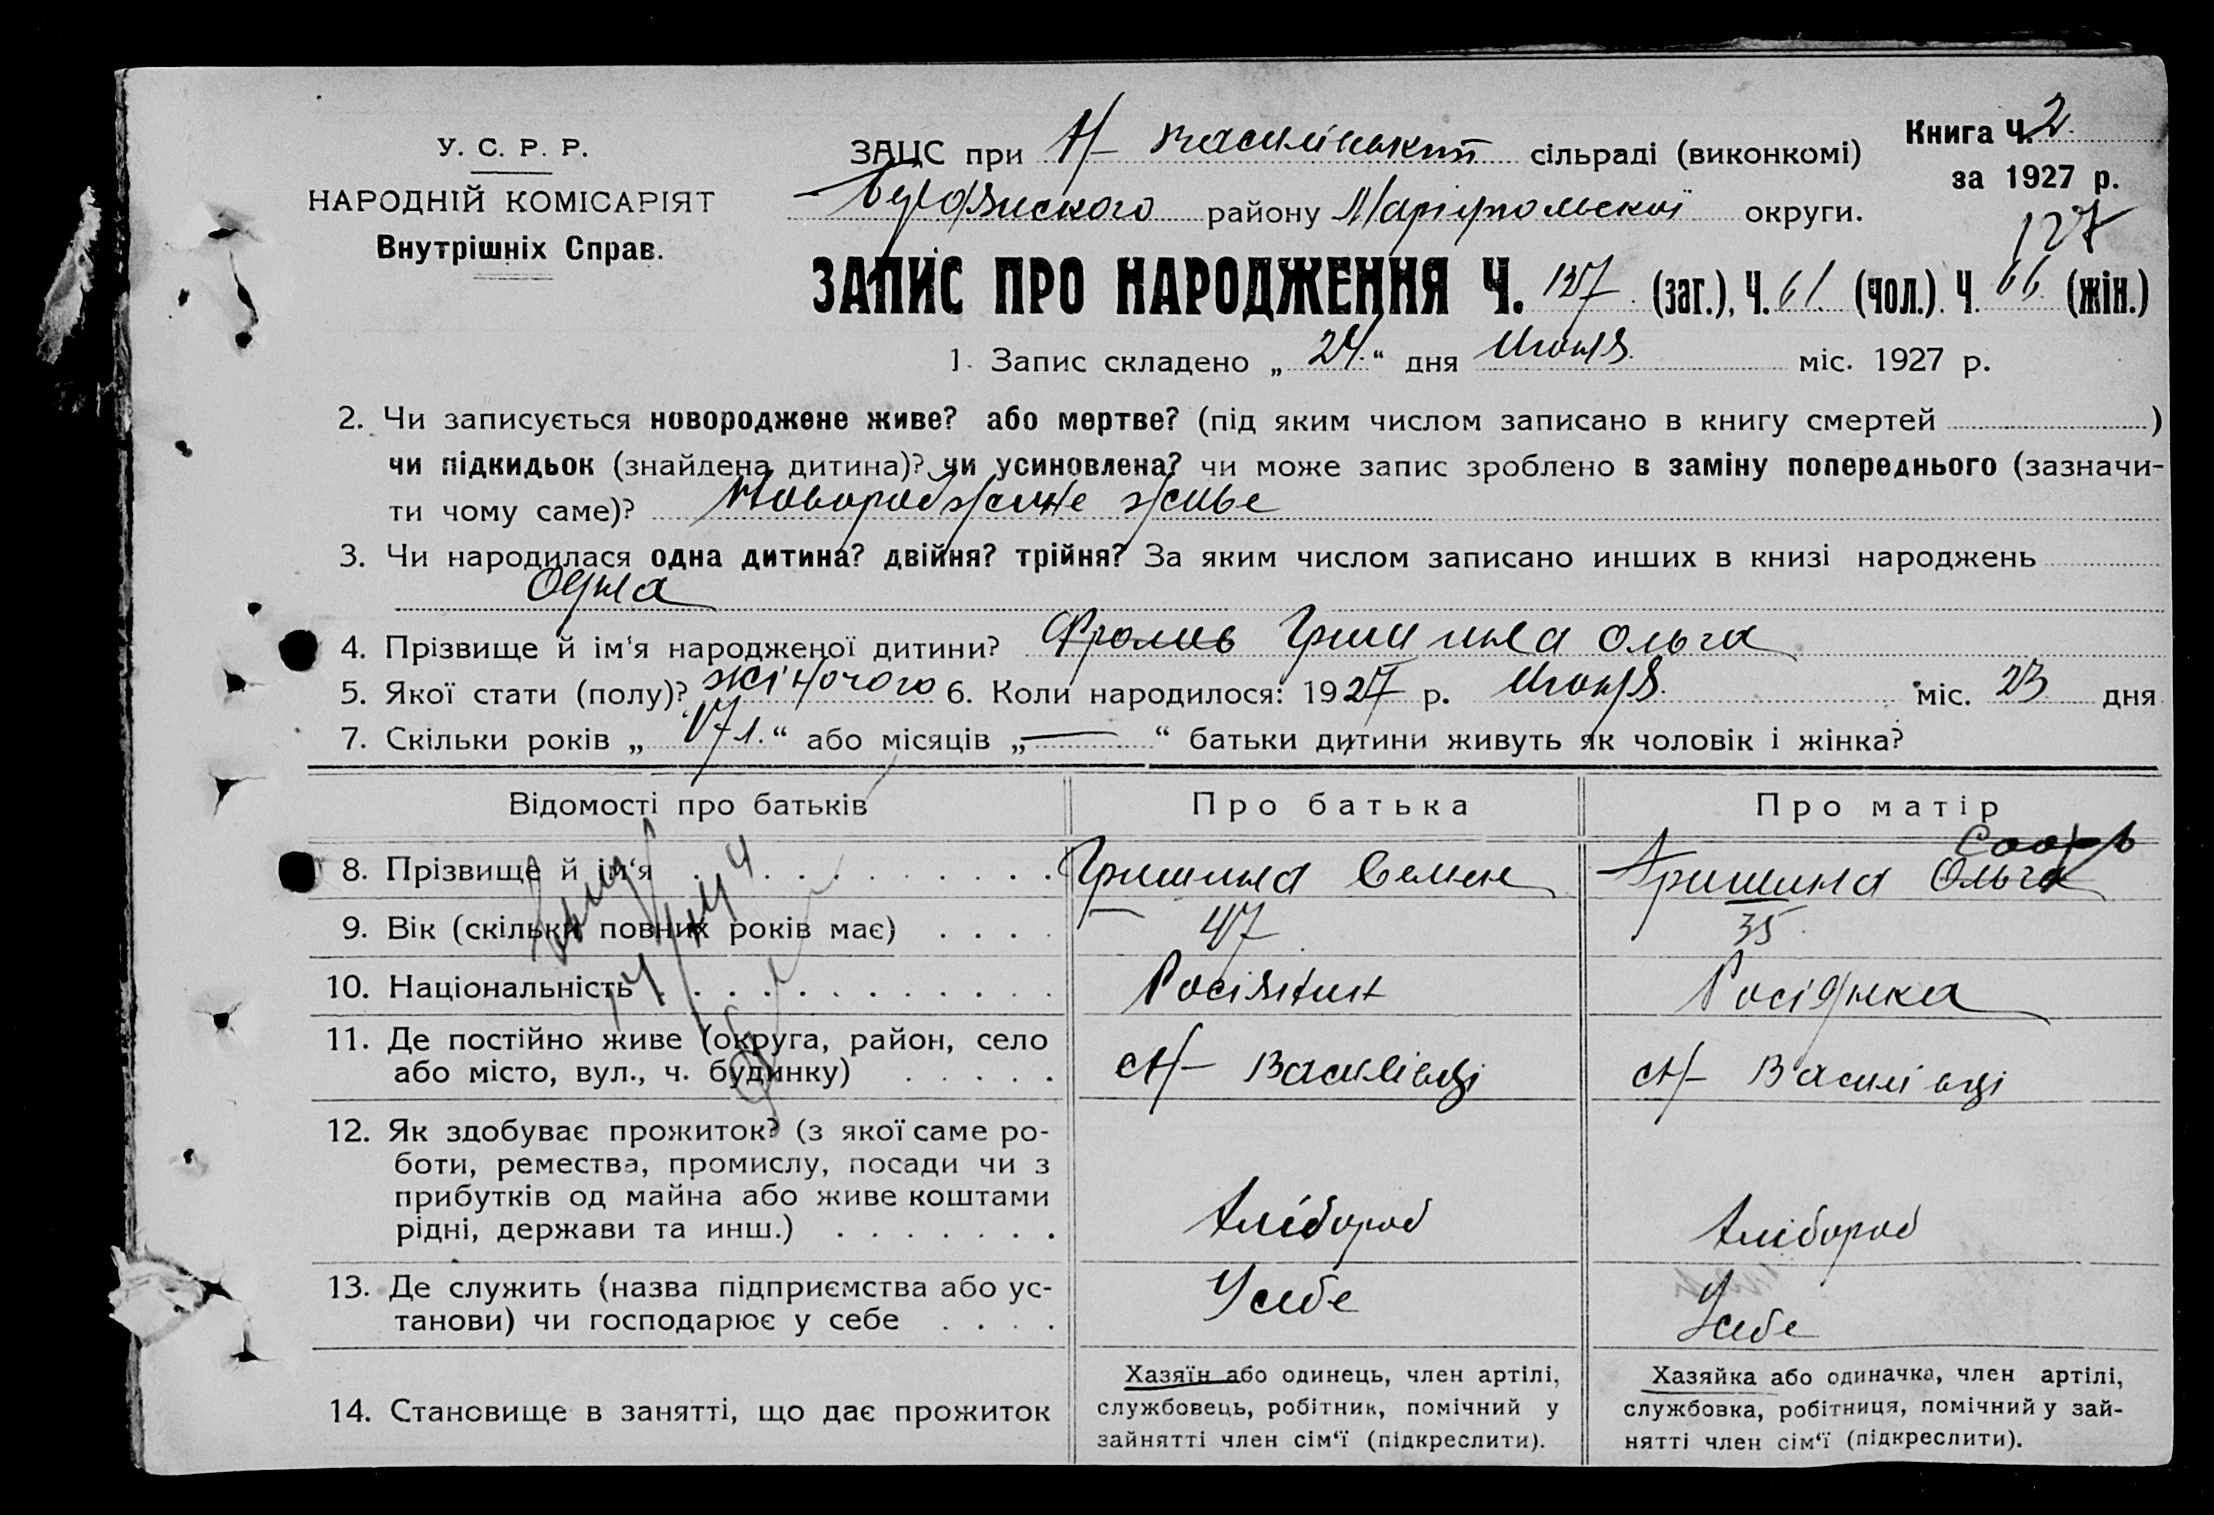 У. С. Р. Р.
НАРОДНІЙ КОМІСАРІЯТ
Внутрішніх Справ.
Книга Ч. 2.
за 1927 р.
127
ЗАЦС при Н-Василівській сільраді (виконкомі)
Бердянського району Маріупольскої округи.
ЗАПИС ПРО НАРОДЖЕННЯ Ч. 127 (заг.), Ч. 61 (чол.). Ч. 66 (жін.)
1. Запис складено „ 24 “ дня Июня міс. 1927 р.
2. Чи записується новороджене живе? або мертве? (під яким числом записано в книгу смертей )
чи підкидьок (знайдена дитина)? чи усиновлена? чи може запис зроблено в заміну попереднього (зазначи-
ти чому саме)? Новороджене живе
3. Чи народилася одна дитина? двійня? трійня? За яким числом записано инших в книзі народжень
Одна
4. Прізвище й ім‘я народженої дитини? Гришина Ольга
5. Якої стати (полу)? жіночого 6. Коли народилося: 1927 р. Июня міс. 23 дня
7. Скільки років „ 17 л. “ або місяців „ — “ батьки дитини живуть як чоловік і жінка?
Відомості про батьків Про батька Про матір
8. Прізвище й ім‘я . . . . . . . . . . Гришина Семен Гришина Ольга
9. Вік (скільки повних років має) . . . . 47 35
10. Національність . . . . . . . . . . . Росіянин Росіянка
11. Де постійно живе (округа, район, село
або місто, вул., ч. будинку) . . . . . Н-Василівці Н-Василівці
12. Як здобуває прожиток? (з якої саме ро-
боти, ремества, промислу, посади чи з
прибутків од майна або живе коштами
рідні, держави та инш.) . . . . . . . Хлібороб Хлібороб
13. Де служить (назва підприємства або ус-
танови) чи господарює у себе . . . . У себе У себе
14. Становище в занятті, що дає прожиток
Хазяїн або одинець, член артілі,
службовець, робітник, помічний у
зайнятті член сім‘ї (підкреслити).
Хазяйка або одиначка, член артілі,
службовка, робітниця, помічний у зай-
нятті член сім‘ї (підкреслити).